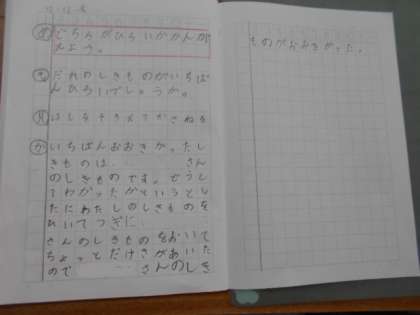 12.12.
め どちらがひろいかかんが
えよう。
も だれのしきものがいちば
んひろいでしょうか。
は はしをそろえてかさねる
か いちばんおおきかったし
きものは、 さん
のしきものです。どうし
てわかったかというとし
たにわたしのしきものを
おいてつぎに、
さんのしきものをおいて
ちょっとだけさがあいた
ので さんのしき
ものがおおきかった。